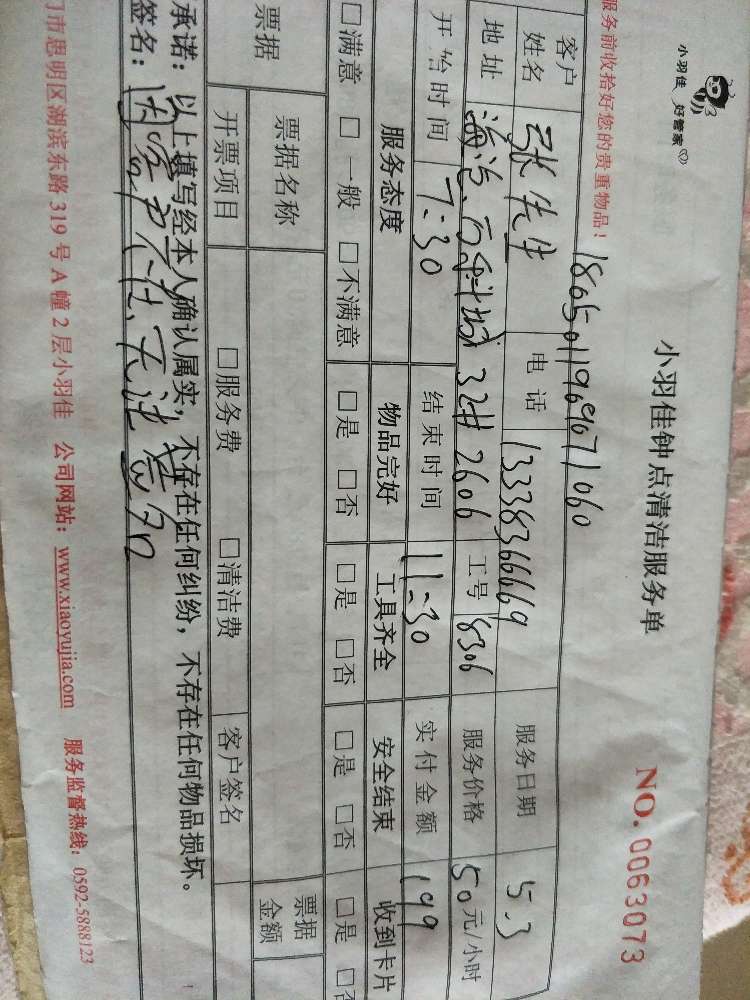 小羽佳 好管家
小羽佳钟点清洁服务单
NO. 0063073
服务前收拾好您的贵重物品！
18650119696071060
客户姓名 张先生 电话 13338366669 服务日期 5.3
地址 32# 2606 工号 8306 服务价格 50元/小时
开始时间 7:30 结束时间 11:30 实付金额 199
服务态度 物品完好 工具齐全 安全结束 收到卡片
□满意 □一般 □不满意 □是 □否 □是 □否 □是 □否 □是 □否
票据 票据名称 票据金额
开票项目 □服务费 □清洁费 客户签名
承诺：以上填写经本人确认属实，不存在任何纠纷，不存在任何物品损坏。
签名：
门市思明区湖滨东路 319 号 A 幢 2 层小羽佳 公司网站：www.xiaoyujia.com 服务监督热线：0592-5888123